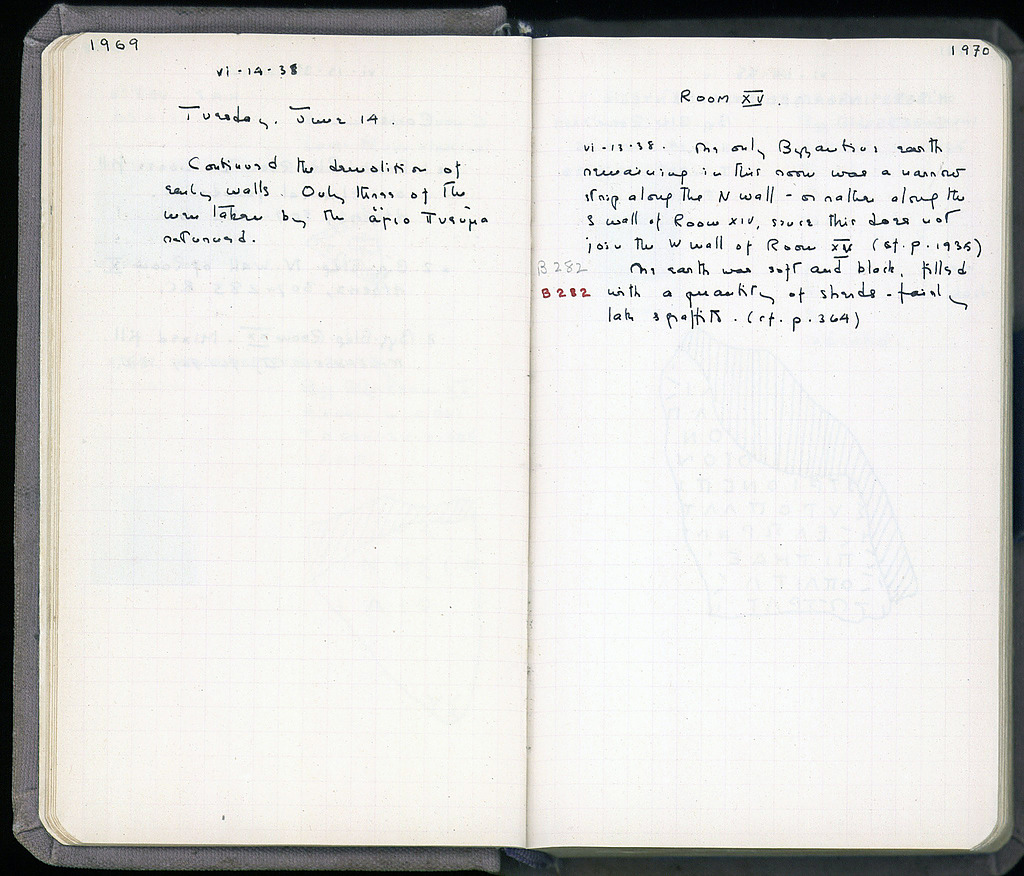 1969
vi-14-38
Tuesday, June 14.
Continued the demolition of
early walls. Only three of the
men taken by the ἅγιο πνεῦμα
returned.
1970
ROOM XV.
vi-13-38. The only Byzantine earth
remaining in this room was a narrow
strip along the N wall - or rather along the
S wall of Room XIV, since this does not
join the W wall of Room XV (cf. p. 1935)
B 282 The earth was soft and black, filled
B 282 with a quantity of sherds - fairly
late sgraffito. (cf. p. 364)